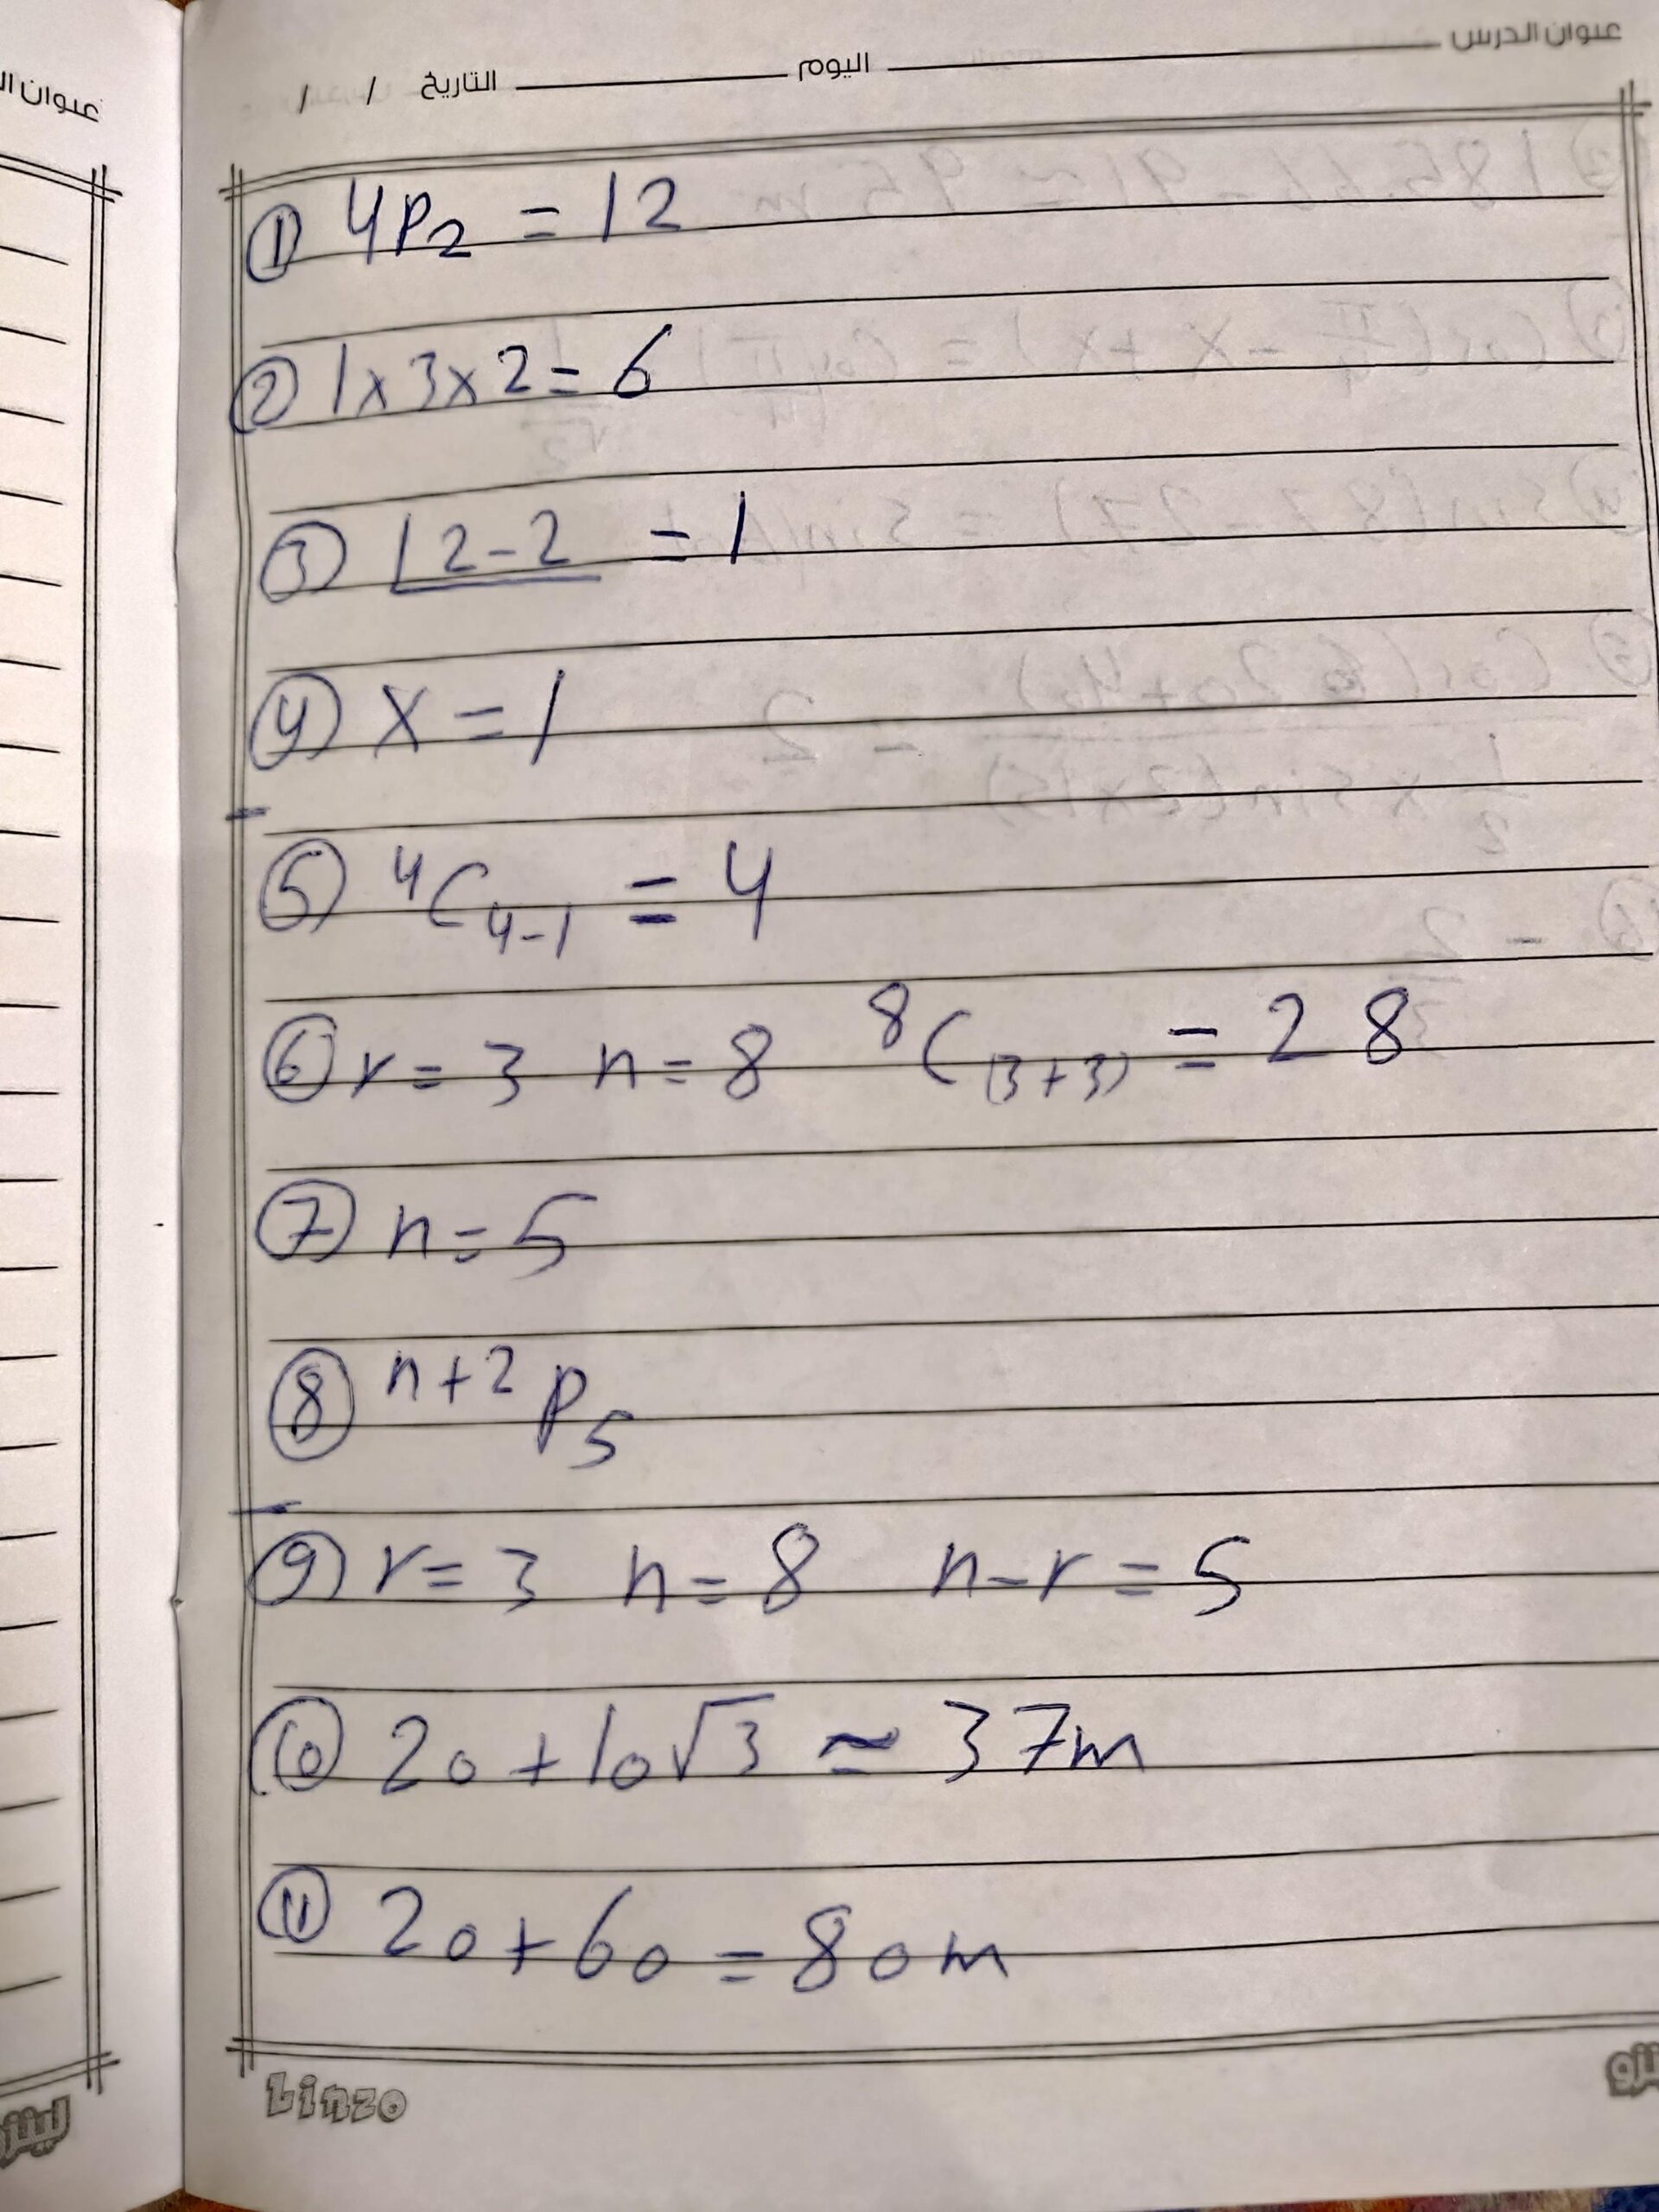 عنوان الدرس اليوم التاريخ / /
① 4P₂ = 12
② 1×3×2= 6
③ ⌊2-2 = 1
④ x = 1
⑤ ⁴C₄₋₁ = 4
⑥ r = 3 n = 8 ⁸C₍₃₊₃₎ = 28
⑦ n = 5
⑧ ⁿ⁺²P₅
⑨ r = 3 n = 8 n-r = 5
⑩ 20+10√3 ≃ 37m
⑪ 20+60 = 80m
Linzo